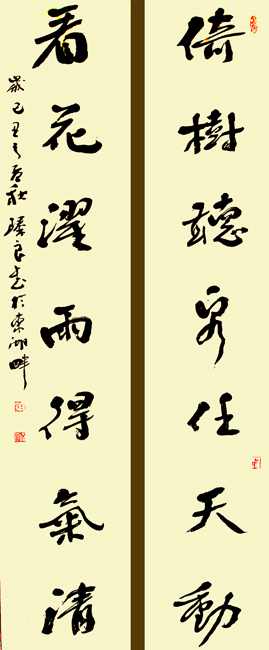 倚樹聽泉任天動
看花濯雨得氣清
歲己丑之春秋瑧良書於東湖畔